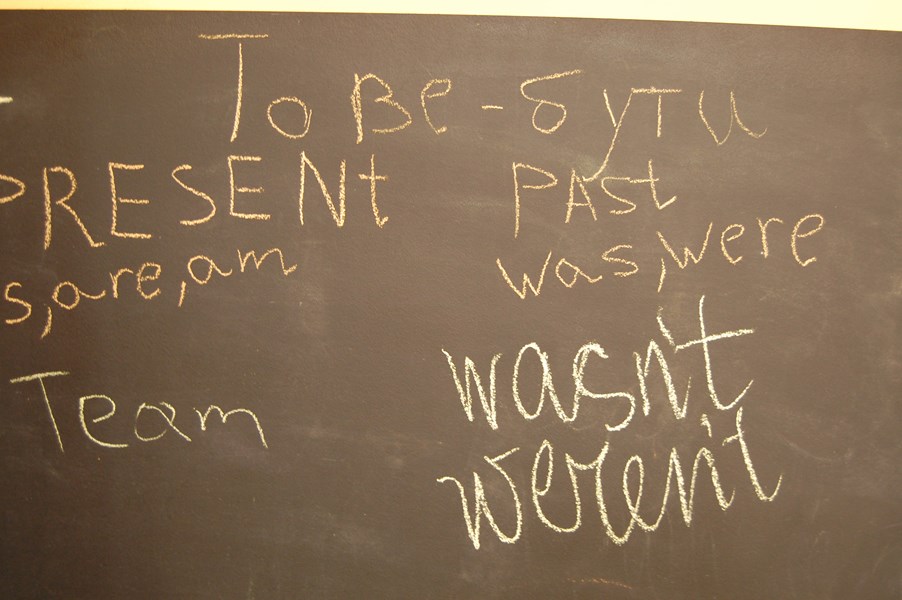 To Be - бути
PRESENt PAst
s, are, am was, were
wasn't
Team
weren't